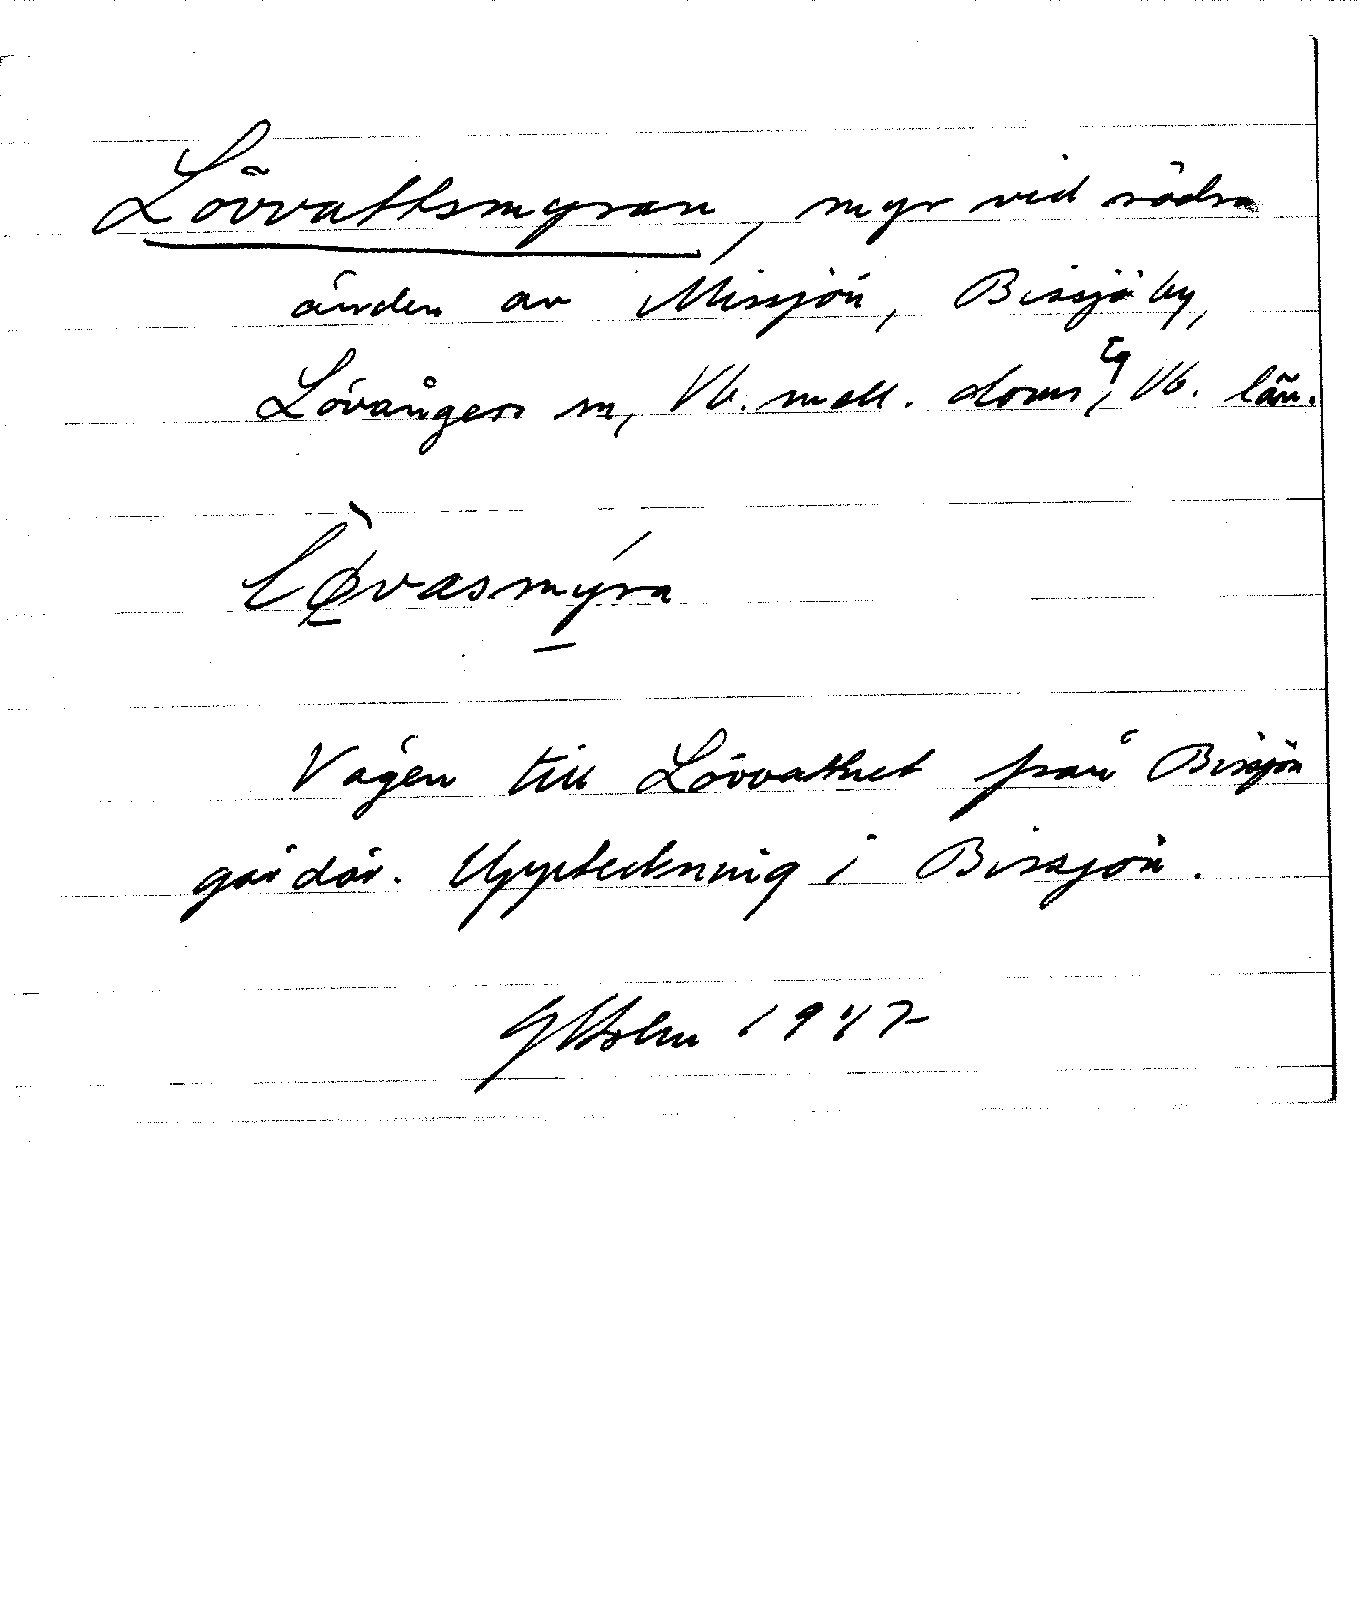 Lövvattsmyran, myr vid södra
änden av Missjön, Bissjö by,
Lövångers sn, Vb. mell. doms. Vb. län.
Lø̀vasmýra
Vägen till Lövvattnet från Bissjön
går där. Uppteckning i Bissjön.
GHolm 1947